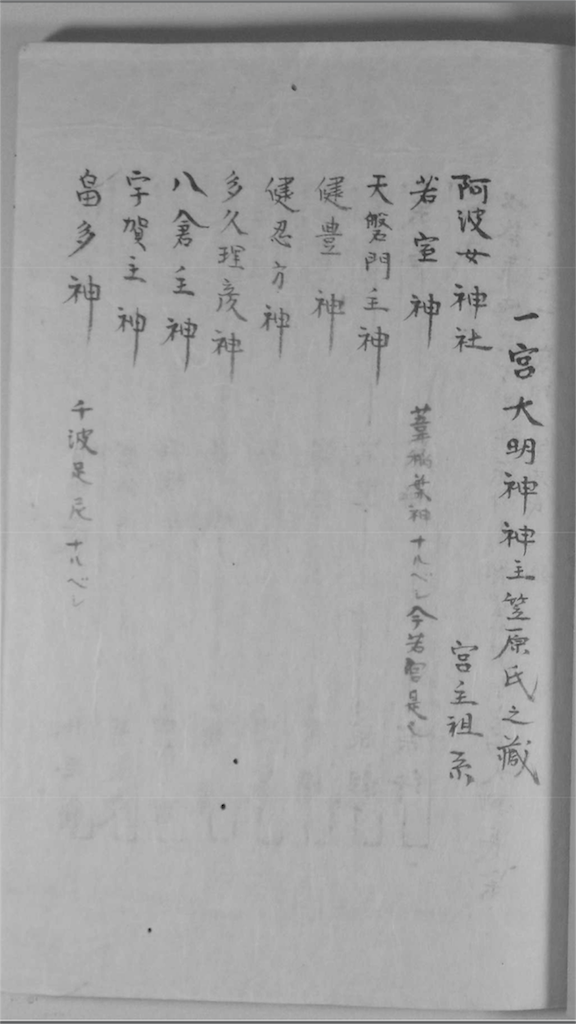 一宮大明神神主笠原氏之蔵
阿波女神社 宮主祖系
若室神 葺 葉神ナルベシ今若宮是也
天磐門主神
健豊神
健忍方神
多久理彦神
八倉主神
宇賀主神
畠多神 千波足尼ナルベシ